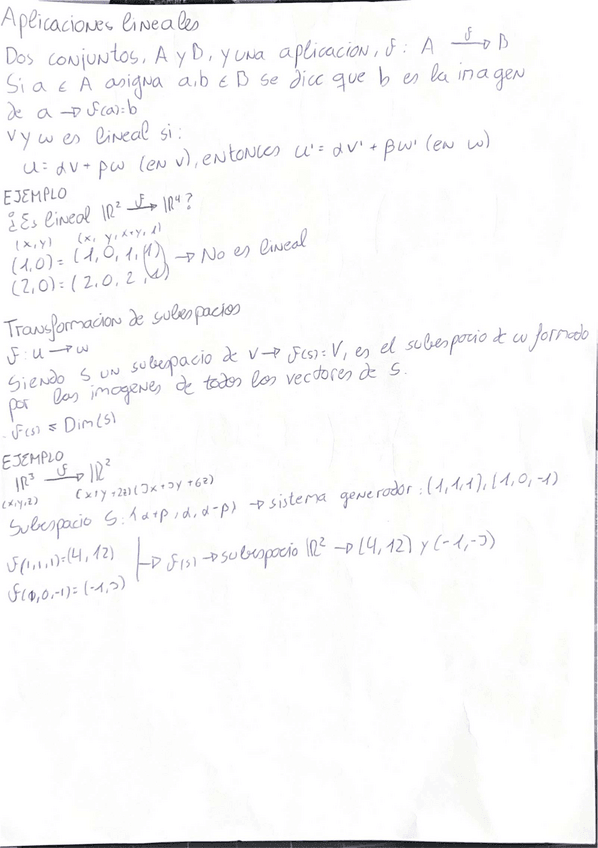 Aplicaciones lineales
Dos conjuntos, A y B, y una aplicacion, f: A →f B
Si a ∈ A asigna a, b ∈ B se dice que b es la imagen
de a → f(a)=b
V y w es lineal si:
u = αv + βw (en v), entonces u' = αv' + βw' (en w)
EJEMPLO
¿Es lineal ℝ² →f ℝ⁴?
(x,y) (x, y, x+y, 1)
(1,0) = (1, 0, 1, 1) → No es lineal
(2,0) = (2, 0, 2, 1)
Transformacion de subespacios
f: u → w
Siendo S un subespacio de v → f(s) = V, es el subespacio de w formado
por las imagenes de todos los vectores de S.
· f(s) ≤ Dim(s)
EJEMPLO
ℝ³ →f ℝ²
(x,y,z) (x+y+2z)(3x+3y+6z)
Subespacio S: (α+β, α, α-β) → sistema generador: (1,1,1), (1,0,-1)
f(1,1,1) = (4,12)
f(1,0,-1) = (-1,3) → f(s) → subespacio ℝ² → (4,12) y (-1,-3)